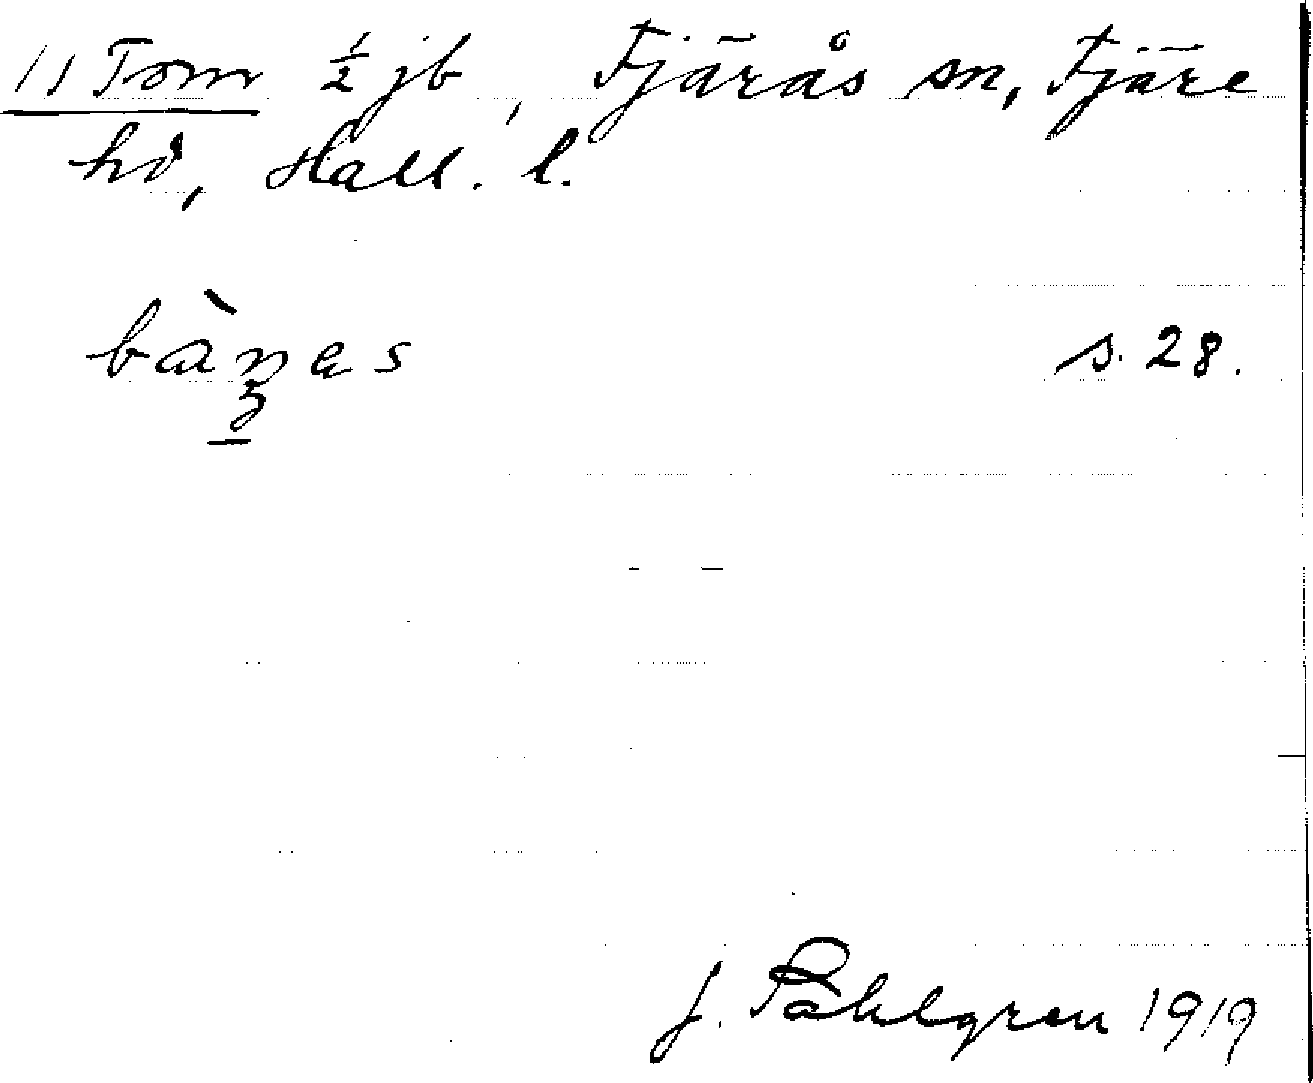 11 Tom ½ jb, Fjärås sn, Fjäre
hd, Hall. l.
s. 28.
J. Sahlgren 1919